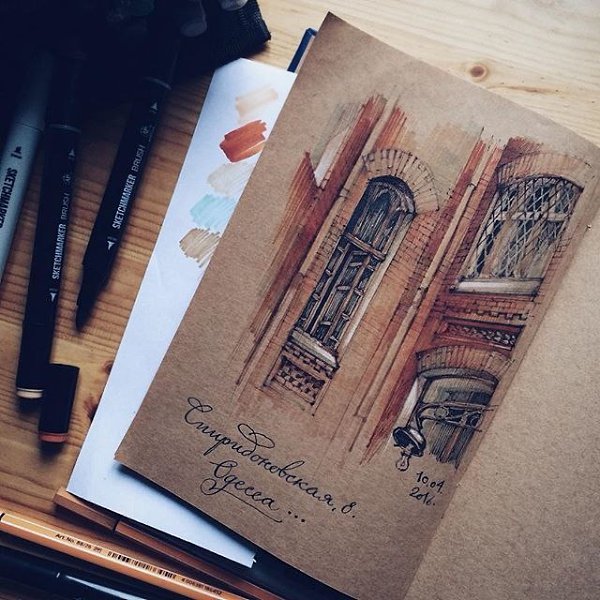 SKETCHMARKER
SKETCHMARKER BRUSH
SKETCHMARKER BRUSH
Спиридоновская, 8.
Одесса ...
2016.
Art.No.